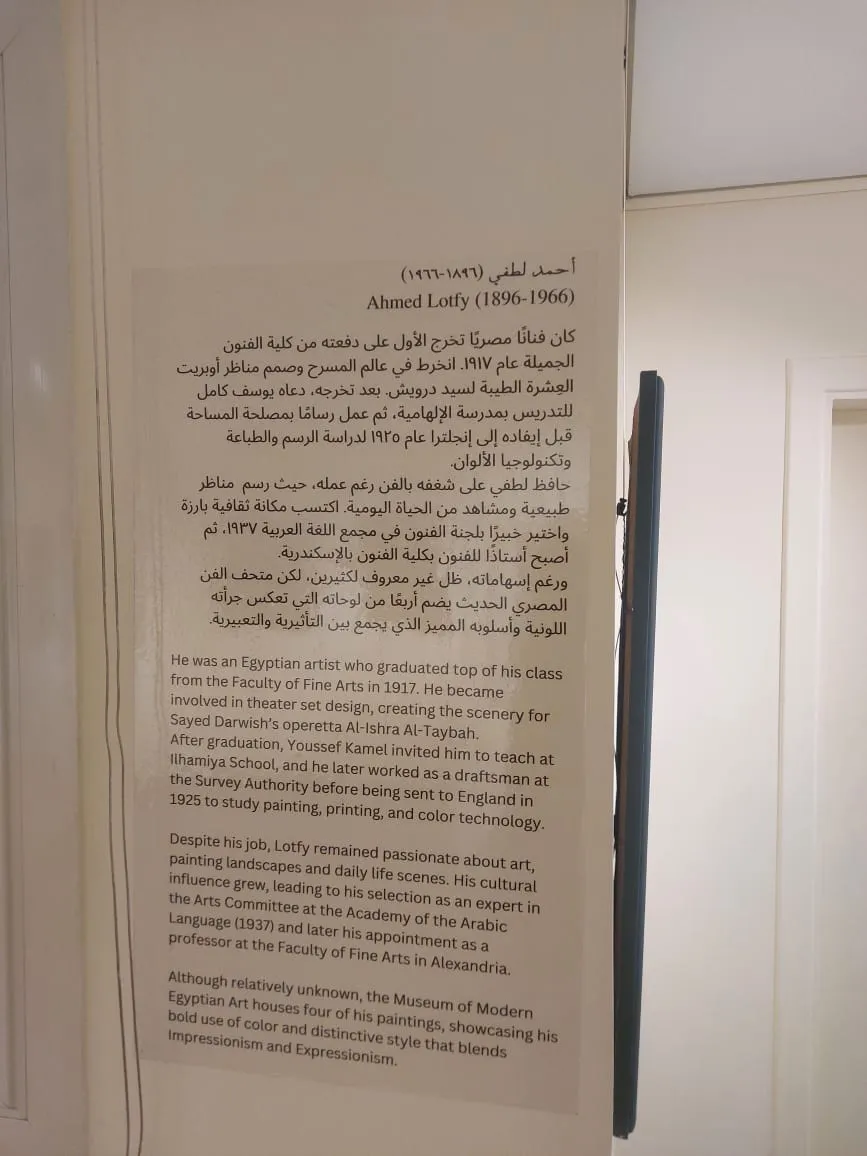 أحمد لطفي (١٨٩٦-١٩٦٦)
Ahmed Lotfy (1896-1966)
كان فنانًا مصريًا تخرج الأول على دفعته من كلية الفنون
الجميلة عام ١٩١٧. انخرط في عالم المسرح وصمم مناظر أوبريت
العِشرة الطيبة لسيد درويش. بعد تخرجه، دعاه يوسف كامل
للتدريس بمدرسة الإلهامية، ثم عمل رسامًا بمصلحة المساحة
قبل إيفاده إلى إنجلترا عام ١٩٢٥ لدراسة الرسم والطباعة
وتكنولوجيا الألوان.
حافظ لطفي على شغفه بالفن رغم عمله، حيث رسم مناظر
طبيعية ومشاهد من الحياة اليومية. اكتسب مكانة ثقافية بارزة
واختير خبيرًا بلجنة الفنون في مجمع اللغة العربية ١٩٣٧، ثم
أصبح أستاذًا للفنون بكلية الفنون بالإسكندرية.
ورغم إسهاماته، ظل غير معروف لكثيرين، لكن متحف الفن
المصري الحديث يضم أربعًا من لوحاته التي تعكس جرأته
اللونية وأسلوبه المميز الذي يجمع بين التأثيرية والتعبيرية.
He was an Egyptian artist who graduated top of his class
from the Faculty of Fine Arts in 1917. He became
involved in theater set design, creating the scenery for
Sayed Darwish's operetta Al-Ishra Al-Taybah.
After graduation, Youssef Kamel invited him to teach at
Ilhamiya School, and he later worked as a draftsman at
the Survey Authority before being sent to England in
1925 to study painting, printing, and color technology.
Despite his job, Lotfy remained passionate about art,
painting landscapes and daily life scenes. His cultural
influence grew, leading to his selection as an expert in
the Arts Committee at the Academy of the Arabic
Language (1937) and later his appointment as a
professor at the Faculty of Fine Arts in Alexandria.
Although relatively unknown, the Museum of Modern
Egyptian Art houses four of his paintings, showcasing his
bold use of color and distinctive style that blends
Impressionism and Expressionism.